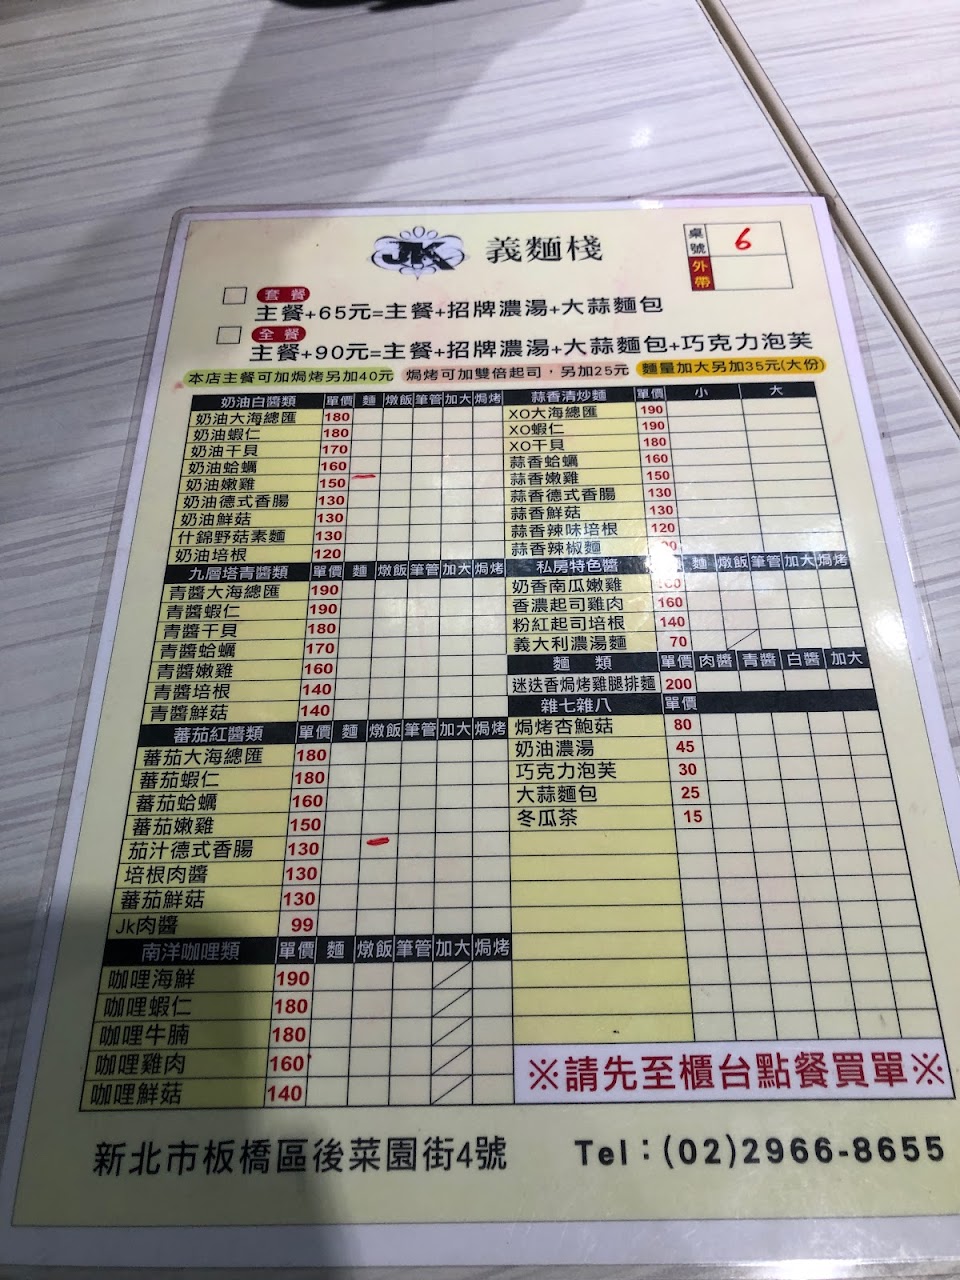 JK 義麵棧
桌號 6
外帶
套餐
主餐+65元=主餐+招牌濃湯+大蒜麵包
全餐
主餐+90元=主餐+招牌濃湯+大蒜麵包+巧克力泡芙
本店主餐可加焗烤另加40元 焗烤可加雙倍起司，另加25元 麵量加大另加35元(大份)
奶油白醬類 單價 麵 燉飯 筆管 加大 焗烤
奶油大海總匯 180
奶油蝦仁 180
奶油干貝 170
奶油蛤蠣 160
奶油嫩雞 150
奶油德式香腸 130
奶油鮮菇 130
什錦野菇素麵 130
奶油培根 120
九層塔青醬類 單價 麵 燉飯 筆管 加大 焗烤
青醬大海總匯 190
青醬蝦仁 190
青醬干貝 180
青醬蛤蠣 170
青醬嫩雞 160
青醬培根 140
青醬鮮菇 140
蕃茄紅醬類 單價 麵 燉飯 筆管 加大 焗烤
蕃茄大海總匯 180
蕃茄蝦仁 180
蕃茄蛤蠣 160
蕃茄嫩雞 150
茄汁德式香腸 130
培根肉醬 130
蕃茄鮮菇 130
Jk肉醬 99
南洋咖哩類 單價 麵 燉飯 筆管 加大 焗烤
咖哩海鮮 190
咖哩蝦仁 180
咖哩牛腩 180
咖哩雞肉 160
咖哩鮮菇 140
蒜香清炒麵 單價 小 大
XO大海總匯 190
XO蝦仁 190
XO干貝 180
蒜香蛤蠣 160
蒜香嫩雞 150
蒜香德式香腸 130
蒜香鮮菇 130
蒜香辣味培根 120
蒜香辣椒麵
私房特色醬 麵 燉飯 筆管 加大 焗烤
奶香南瓜嫩雞
香濃起司雞肉 160
粉紅起司培根 140
義大利濃湯麵 70
麵 類 單價 肉醬 青醬 白醬 加大
迷迭香焗烤雞腿排麵 200
雜七雜八 單價
焗烤杏鮑菇 80
奶油濃湯 45
巧克力泡芙 30
大蒜麵包 25
冬瓜茶 15
※請先至櫃台點餐買單※
新北市板橋區後菜園街4號 Tel：(02)2966-8655